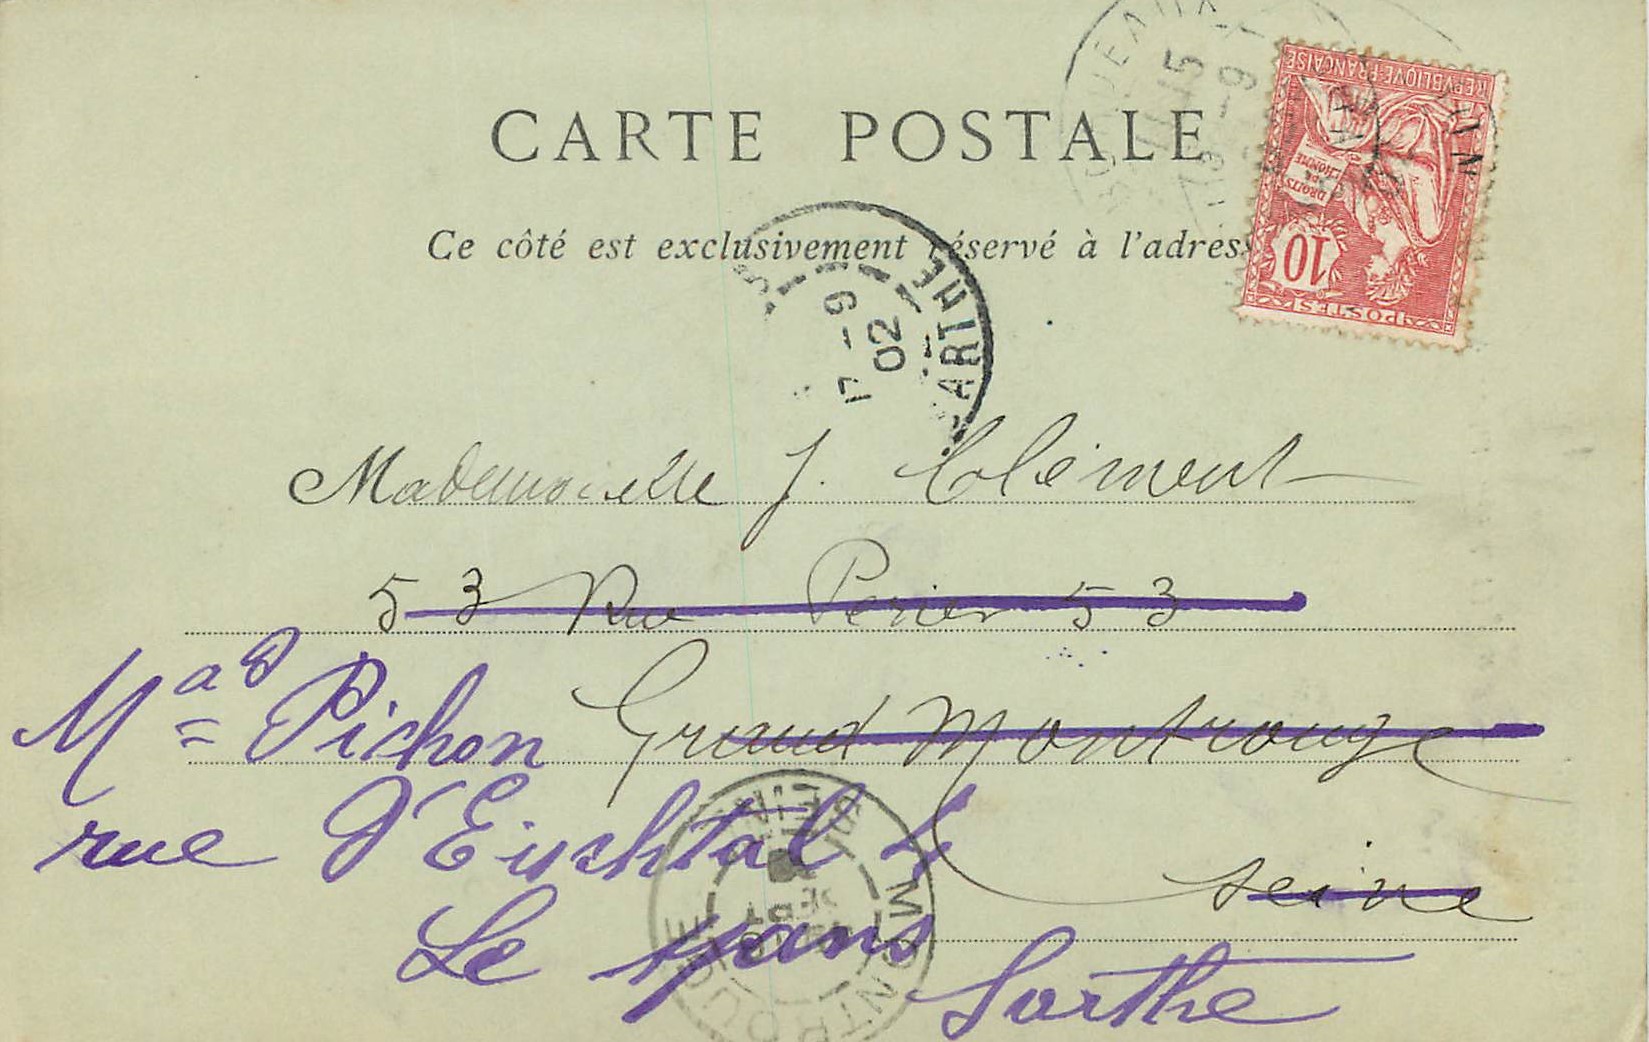 CARTE POSTALE
Ce côté est exclusivement réservé à l'adres
RÉPUBLIQUE FRANÇAISE
DROITS DE L'HOMME
10
POSTES
17 -9
02
SARTHE
Mademoiselle J. Clément
53 Rue Périer 53
Grand Montrouge
seine
Mad Pichon
rue d'Eichtal 4
Le mans
Sarthe
MONTROUGE
SEINE
SEPT